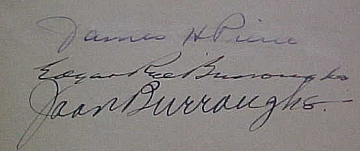 James H Pierce
Edgar Rice Burroughs
Joan Burroughs